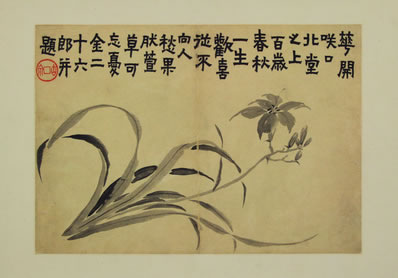 華開
咲口
北堂
之上
百歲
春秋
一生
歡喜
從不
向人
愁果
然萱
草可
忘憂
金二
十六
郎并
題